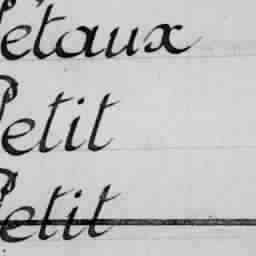 étaux
Petit
Petit